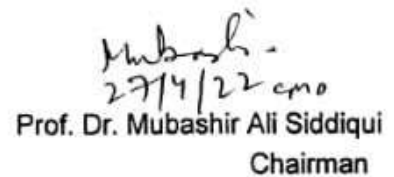 Mubashi.
27/4/22
Prof. Dr. Mubashir Ali Siddiqui
Chairman